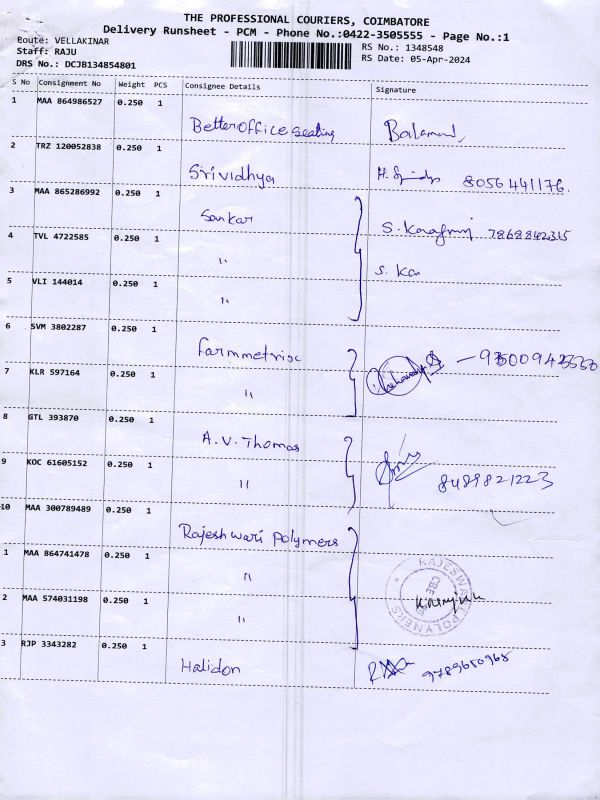 THE PROFESSIONAL COURIERS, COIMBATORE
Delivery Runsheet - PCM - Phone No.:0422-3505555 - Page No.:1
Route: VELLAKINAR
Staff: RAJU
DRS No.: DCJB134854801
RS No.: 1348548
RS Date: 05-Apr-2024
S No Consignment No Weight PCS Consignee Details Signature
1 MAA 864986527 0.250 1
Betteroffice seating
2 TRZ 120052838 0.250 1
Srividhya 8056441176.
3 MAA 865286992 0.250 1
Sankar 7868842315
4 TVL 4722585 0.250 1
"
5 VLI 144014 0.250 1
"
6 SVM 3802287 0.250 1
Farmmetrisc
7 KLR 597164 0.250 1
"
8 GTL 393870 0.250 1
A.V. Thomas
9 KOC 61605152 0.250 1
" 8489821223
10 MAA 300789489 0.250 1
Rajeshwari Polymers
1 MAA 864741478 0.250 1
"
2 MAA 574031198 0.250 1
"
RAJESWARI POLYMERS
CBE
3 RJP 3343282 0.250 1
Halidon 9789680968